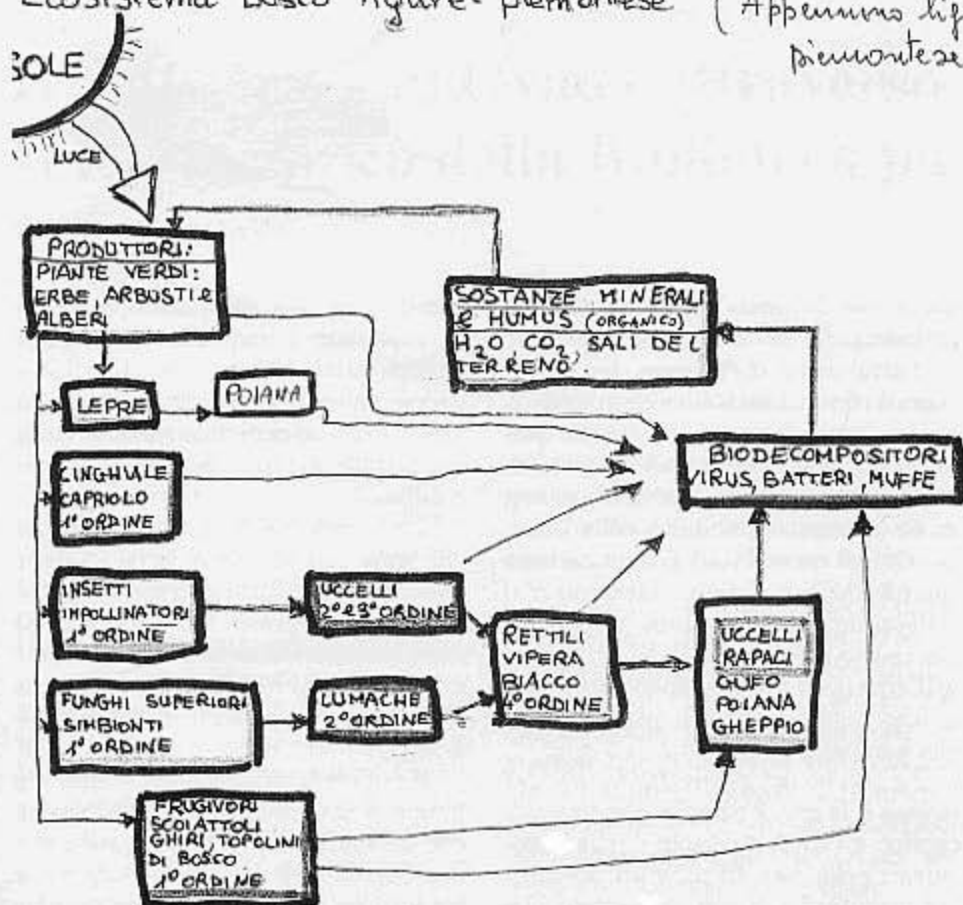 Ecosistema bosco ligure-piemontese (Appennino
piemontese
SOLE
LUCE
PRODUTTORI:
PIANTE VERDI:
ERBE, ARBUSTI e
ALBERI
SOSTANZE MINERALI
e HUMUS (ORGANICO)
H₂O, CO₂, SALI DEL
TERRENO
LEPRE
POIANA
BIODECOMPOSITORI
VIRUS, BATTERI, MUFFE
CINGHIALE
CAPRIOLO
1° ORDINE
INSETTI
IMPOLLINATORI
1° ORDINE
UCCELLI
2° e 3° ORDINE
RETTILI
VIPERA
BIACCO
4° ORDINE
UCCELLI
RAPACI
GUFO
POIANA
GHEPPIO
FUNGHI SUPERIORI
SIMBIONTI
1° ORDINE
LUMACHE
2° ORDINE
FRUGIVORI
SCOIATTOLI
GHIRI, TOPOLINI
DI BOSCO
1° ORDINE